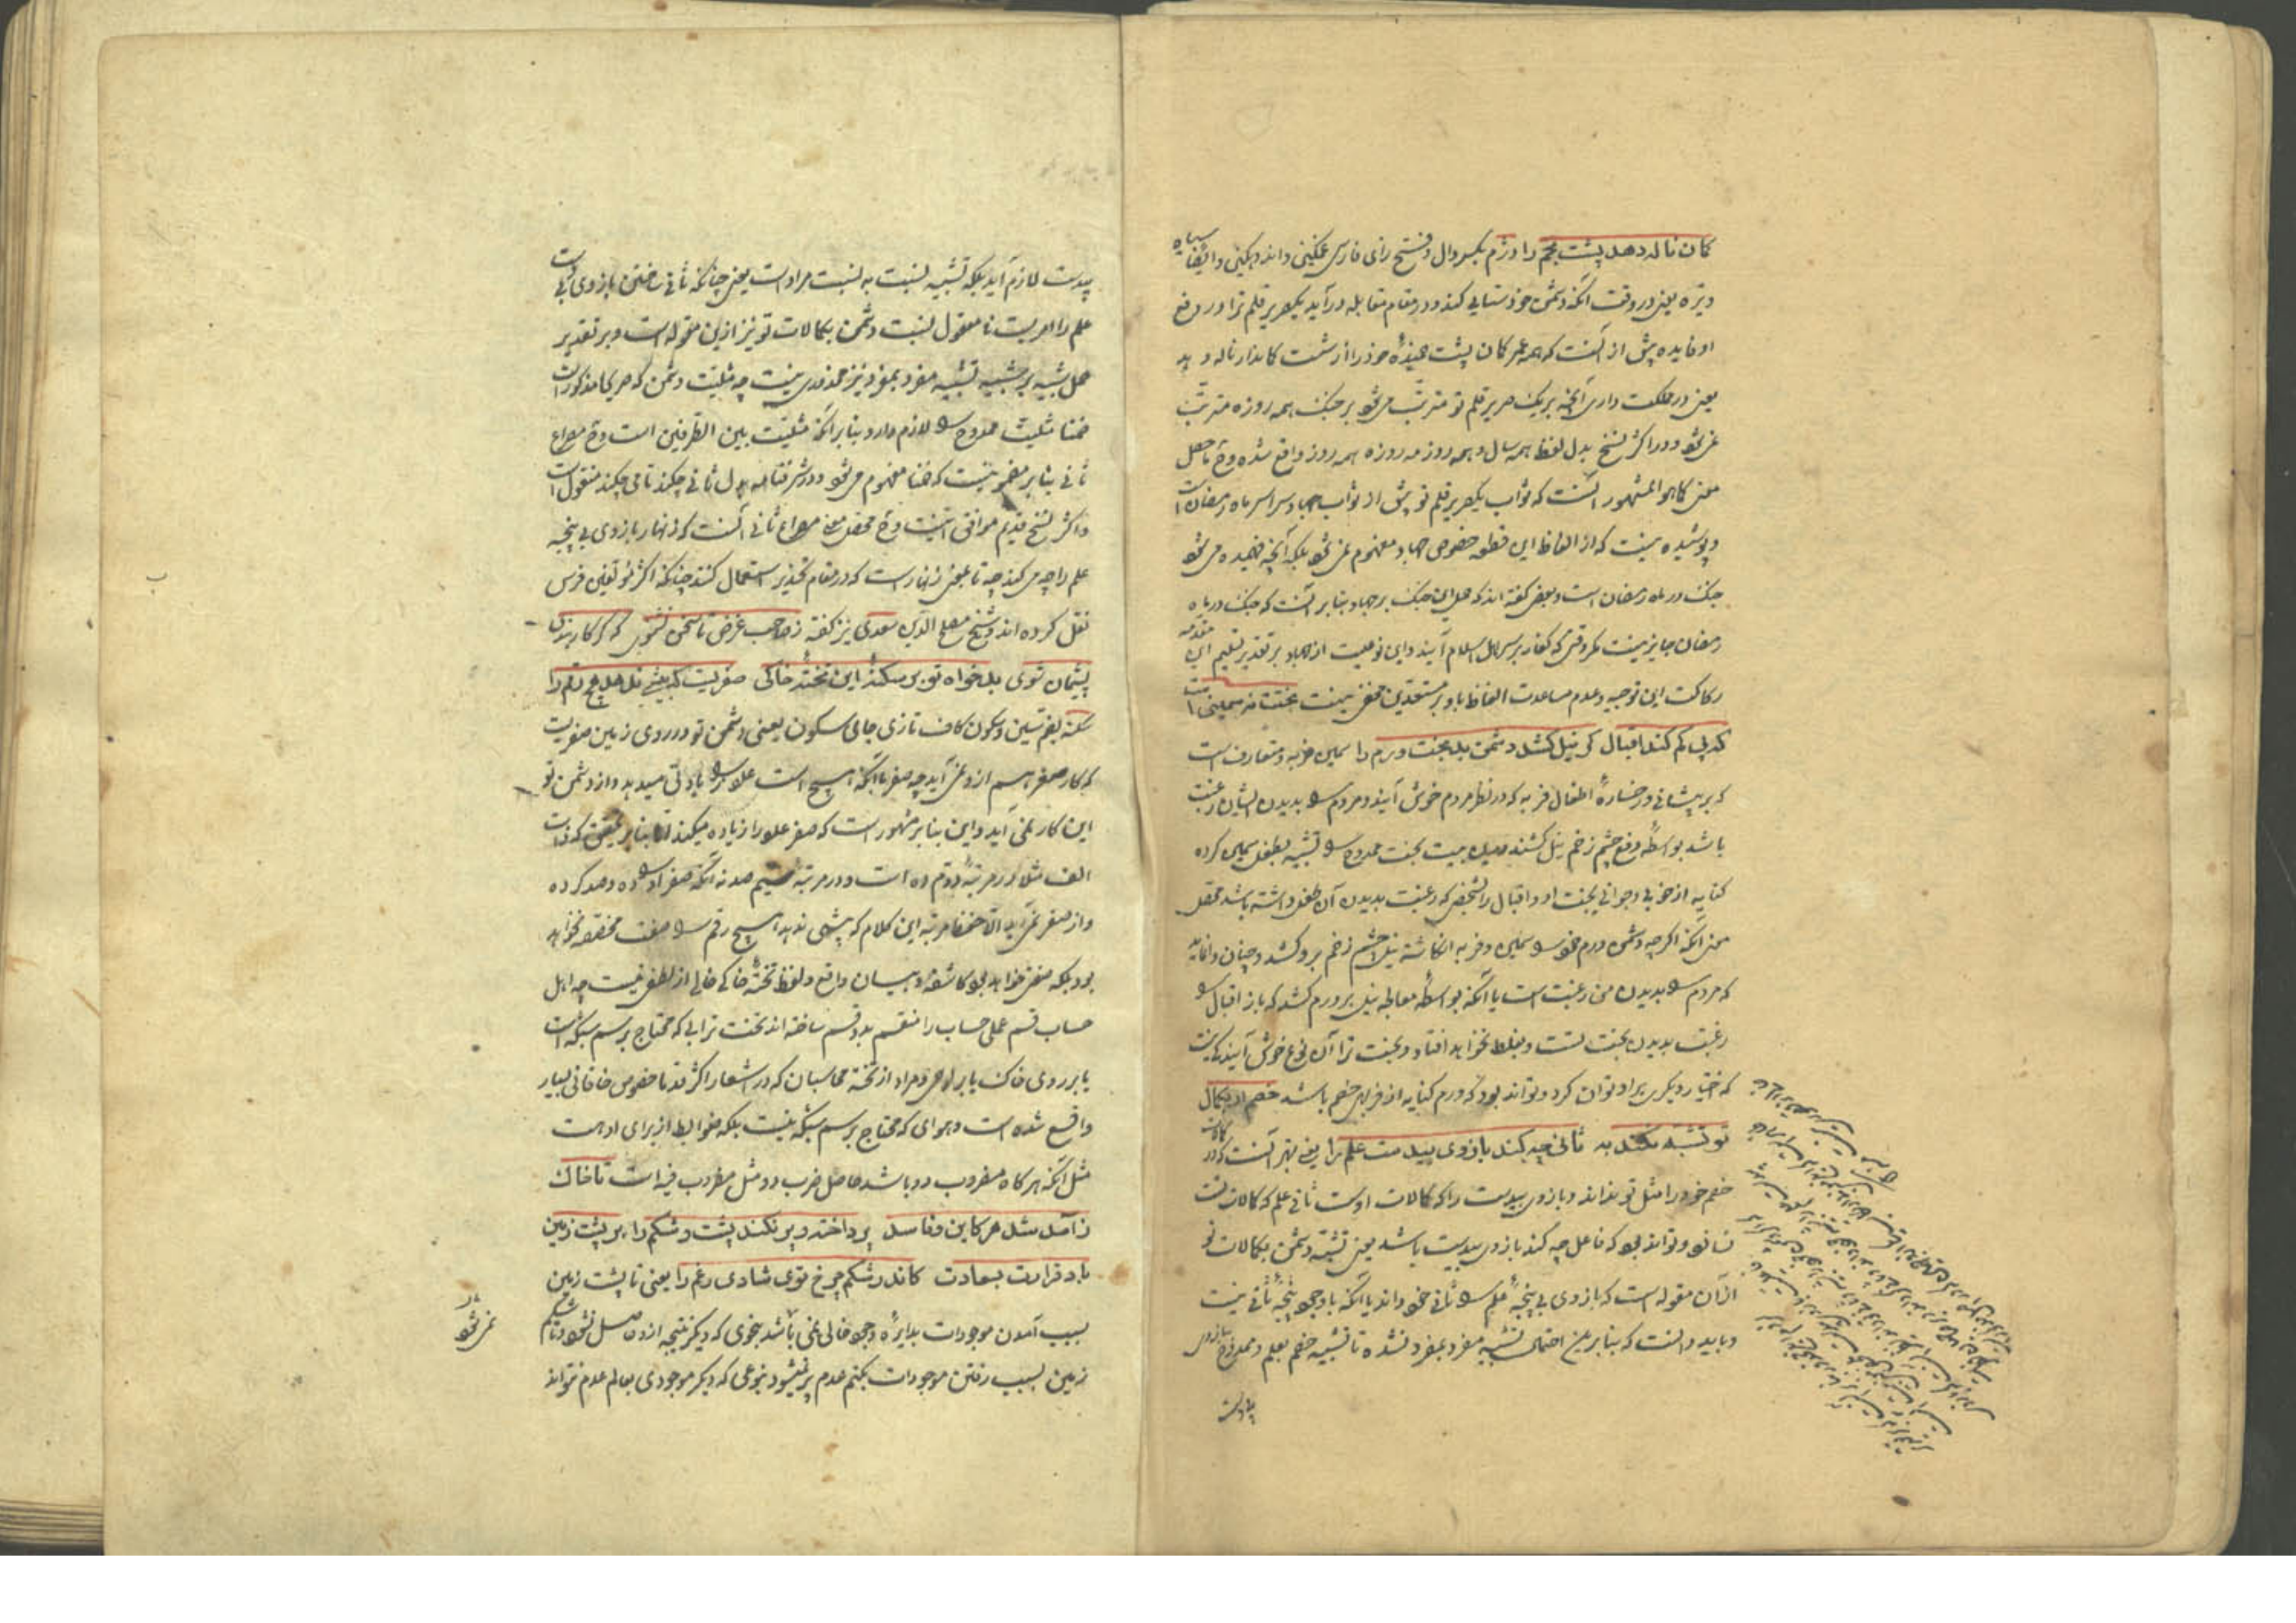 کان ناله دهد پشت بخم را و دژم بکسر دال و فتح زای فارسی غمگینی و اندوهگینی و ایضا سیاه
و تیره یعنی در وقت آنکه دشمن خودستایی کند و در مقام مقابله درآید یکصریر قلم ترا در دفع
او فایده بیش از آنست که همه عمر کمان پشت خمیده خود را از شست کماندار ناله دهد
یعنی در مملکت داری آنچه بر یک صریر قلم تو مترتب می‌شود بر جنگ همه روزه مترتب
نمی‌شود و در اکثر نسخ بدل لفظ همه سال و همه روز مه روزه همه روز واقع شده و ح حاصل
معنی کما هو المشهور آنست که ثواب یکصریر قلم تو بیش از ثواب جهاد سراسر ماه رمضان است
و پوشیده نیست که از الفاظ این قطعه خصوص جهاد مفهوم نمی‌شود بلکه آنچه فهمیده می‌شود
جنگ در ماه رمضان است و بعضی گفته‌اند که حمل این جنگ بر جهاد بنابر آنست که جنگ در ماه
رمضان جایز نیست مگر وقتی که کفار بر سر اهل اسلام آیند و این نوعیست از جهاد و بر تقدیر تسلیم این مقدمه
رکاکت این توجیه و عدم مساعدت الفاظ باو بر مستعدین مخفی نیست بختت نه سمینی است
که پی کم کند اقبال گر نیل کشد دشمن بد بخت ورم را سمین فربه و متعارف است
که بر پیشانی و رخساره اطفال فربه که در نظر مردم خوش آیند و مردم را بدیدن ایشان رغبت
باشد بواسطه دفع چشم زخم نیل کشند درین بیت بخت ممدوح را تشبیه بطفل سمین کرده
کنایه از خوبی و جوانی بخت او و اقبال را بشخصی که رغبت بدیدن آن طفل داشته باشد محصل
معنی آنکه اگرچه دشمن ورم خود را سمین و فربه انگاشته نیل چشم زخم برو کشد و چنان وانماید
که مردم را بدیدن من رغبت است یا آنکه بواسطه معالجه نیل بر ورم کشد که باز اقبال را
رغبت بدیدن بخت تست و بغلط نخواهد افتاد و بخت ترا آن نوع خوش آیندگی نیست
که اختیار دیگری بر او توان کرد و تواند بود که ورم کنایه از فربهی خصم باشد خصم ار بکمال
تو تشبه نکند به ثانی چه کند بازوی بیدست علم را یعنی بهتر آنست که در کمالات
خصم خود را مثل تو نداند و بازوی بیدست را که کمالات اوست ثانی علم که کمالات تست
نسازد و تواند بود که فاعل چه کند بازوی بیدست باشد یعنی تشبه دشمن بکمالات تو
از آن مقوله است که بازوی بی پنجه علم را ثانی خود داند یا آنکه با وجود پنجه ثانی نیست
و باید دانست که بنابرین احتمال تشبیه مفرد بمفرد نشده تا تشبیه خصم بعلم و ممدوح ببازوی
بیدست
بیدست لازم آید بلکه تشبیه نسبت به نسبت مراد است یعنی چنانکه ثانی ساختن بازوی بیدست
علم را امریست نامعقول نسبت دشمن بکمالات تو نیز ازین مقوله است و بر تقدیر
حمل تشبیه بر تشبیه مفرد بمفرد نیز محذوری نیست چه مثلیت دشمن که صریحا مذکور است
ضمنا مثلیت ممدوح را لازم دارد بنابر آنکه مثلیت بین الطرفین است و ح مصراع
ثانی بنابر مضمونیست که ضمنا مفهوم می‌شود و در شرفنامه بدل ثانی چکند تا می چکند منقول است
و اکثر نسخ قدیم موافق اینست و ح محصل معنی مصراع ثانی آنست که زنهار بازوی بی پنجه
علم را چه می‌کند چه تا بمعنی زنهار است که در مقام تحذیر استعمال کنند چنانکه اکثر مؤلفین فرس
نقل کرده‌اند و شیخ مصلح الدین سعدی نیز گفته ز صاحب غرض تا سخن نشنوی که گر کار بندی
پشیمان شوی بدخواه تو بر سکنه این تخته خاکی صفریست که بیشی ندهد هیچ رقم را
سکنه بضم سین و سکون کاف تازی جای سکون یعنی دشمن تو در روی زمین صفریست
که کار صفر هم از و نمی‌آید چه صفر با آنکه هیچ است علاوه را زیادتی میدهد و از دشمن تو
این کار نمی‌آید و این بنابر مشهور است که صفر عدد را زیاده میکند اما بنابر تحقیق که ذات
الف مثلا در مرتبه دوم ده است و در مرتبه سیم صد نه آنکه صفر او را ده و صد کرده
و از صفر نمی‌آید الا حفظ مرتبه این کلام که بیشی ندهد هیچ رقم را صفت مخصصه نخواهد
بود بلکه صفت خواهد بود کاشفه و بیان واقع و لفظ تخته خاکی خالی از لطفی نیست چه اهل
حساب قسم عمل حساب را منقسم بدو قسم ساخته‌اند تخت ترابی که محتاج برسم شبکه است
یا بر روی خاک یا بر لوحی و مراد از تخته محاسبان که در اشعار اکثر قدما خصوص خاقانی بسیار
واقع شده است و هوای که محتاج برسم شبکه نیست بلکه ضوابط از برای او هست
مثل آنکه هر گاه مضروب دو باشد حاصل ضرب دو مثل مضروب فیه است تا خاک
ز آمد شد هر کاین و فاسد پرداخته و پر نکند پشت و شکم را بر پشت زمین
باد قرارت بسعادت کاندر شکم چرخ توی شادی و غم را یعنی تا پشت زمین
بسبب آمدن موجودات بدایره وجود خالی نمی‌باشد بنحوی که دیگر نتیجه ازو حاصل نشود و تا شکم
زمین بسبب رفتن موجودات بکتم عدم پر نمیشود بنوعی که دیگر موجودی بعالم عدم نتواند
نمی‌شود